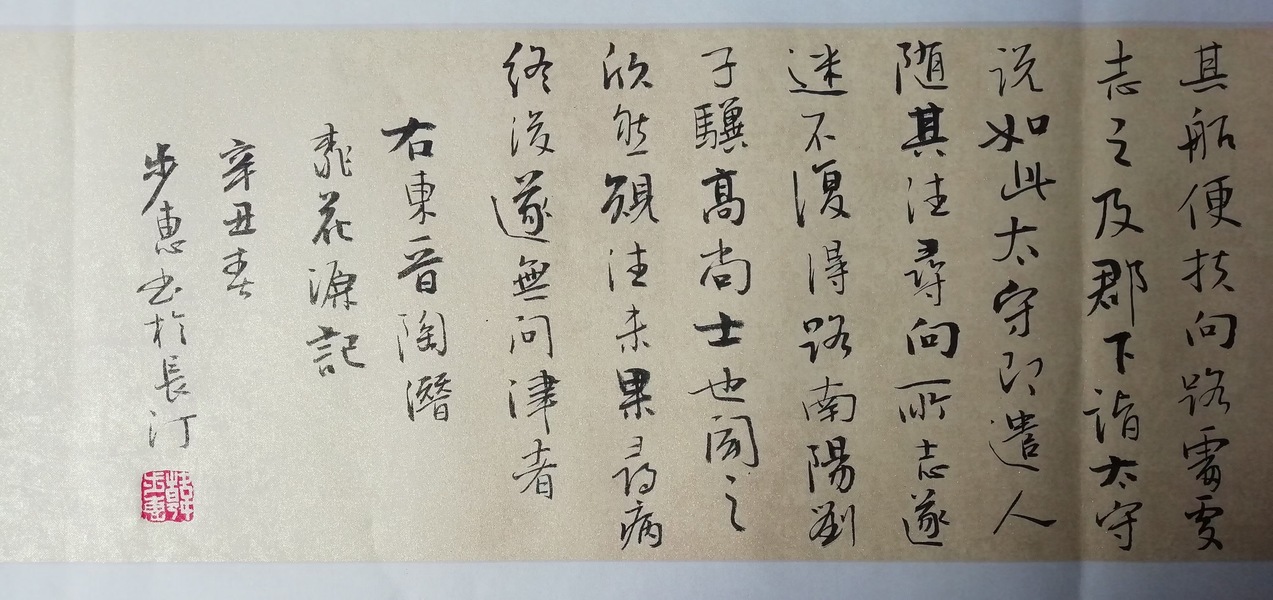 其船便扶向路處處
志之及郡下詣太守
说如此太守即遣人
随其往尋向所志遂
迷不復得路南陽劉
子驥高尚士也聞之
欣然規往未果尋病
终後遂無问津者
右東晋陶潛
桃花源記
辛丑春
步惠书於長汀